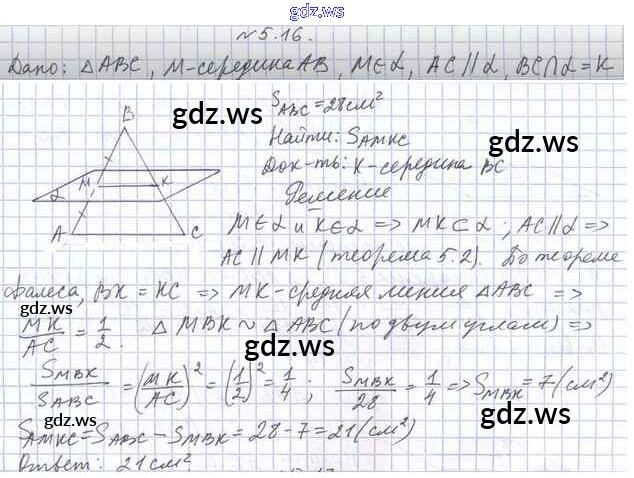 gdz.ws
№5.16.
Дано: △ABC, M-середина AB, M∈α, AC∥α, BC∩α=K
S_ABC=28см²
gdz.ws
Найти: S_AMKC
Док-ть: K-середина BC
gdz.ws
Решение
B
M
K
α
A
C
M∈α и K∈α => MK⊂α; AC∥α =>
AC∥MK (теорема 5.2). По теореме
Фалеса, BK=KC => MK-средняя линия △ABC =>
gdz.ws
MK/AC = 1/2. △MBK ~ △ABC (по двум углам) =>
gdz.ws
S_MBK/S_ABC = (MK/AC)² = (1/2)² = 1/4; S_MBK/28 = 1/4 => S_MBK = 7 (см²)
gdz.ws
S_AMKC = S_ABC - S_MBK = 28-7 = 21 (см²)
gdz.ws
Ответ: 21см².
gdz.ws